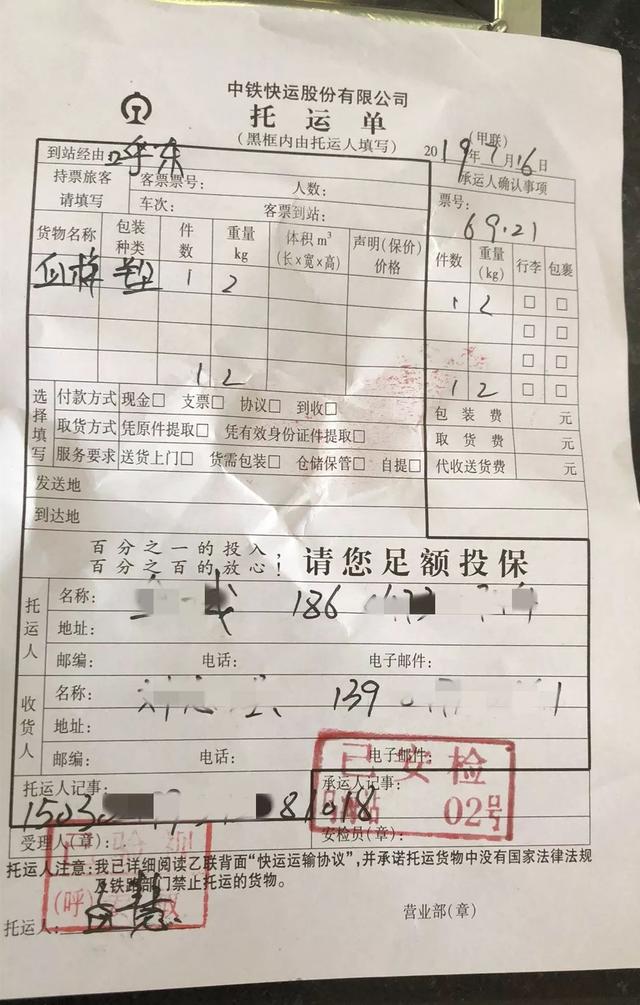 中铁快运股份有限公司
托运单
(黑框内由托运人填写)
(甲联)
2019年7月16日
到站经由 呼东
承运人确认事项
持票旅客
请填写
客票票号: 人数:
车次: 客票到站:
票号:
69.21
货物名称 包装种类 件数 重量kg 体积m³(长×宽×高) 声明(保价)价格 件数 重量(kg) 行李 包裹
塑 1 2
1 2 □ □
□ □
□ □
1 2
1 2 □ □
选择填写
付款方式 现金□ 支票□ 协议□ 到收□
包装费 元
取货方式 凭原件提取□ 凭有效身份证件提取□
取货费 元
服务要求 送货上门□ 货需包装□ 仓储保管□ 自提□
代收送货费 元
发送地
到达地
百分之一的投入,
百分之百的放心! 请您足额投保
托运人
名称: 186
地址:
邮编: 电话: 电子邮件:
收货人
名称: 139
地址:
邮编: 电话: 电子邮件:
已安检
02号
托运人记事:
承运人记事:
1503 81018
受理人(章):
安检员(章):
托运人注意:我已详细阅读乙联背面“快运运输协议”,并承诺托运货物中没有国家法律法规
及铁路部门禁止托运的货物。
(呼)
托运人:
营业部(章)